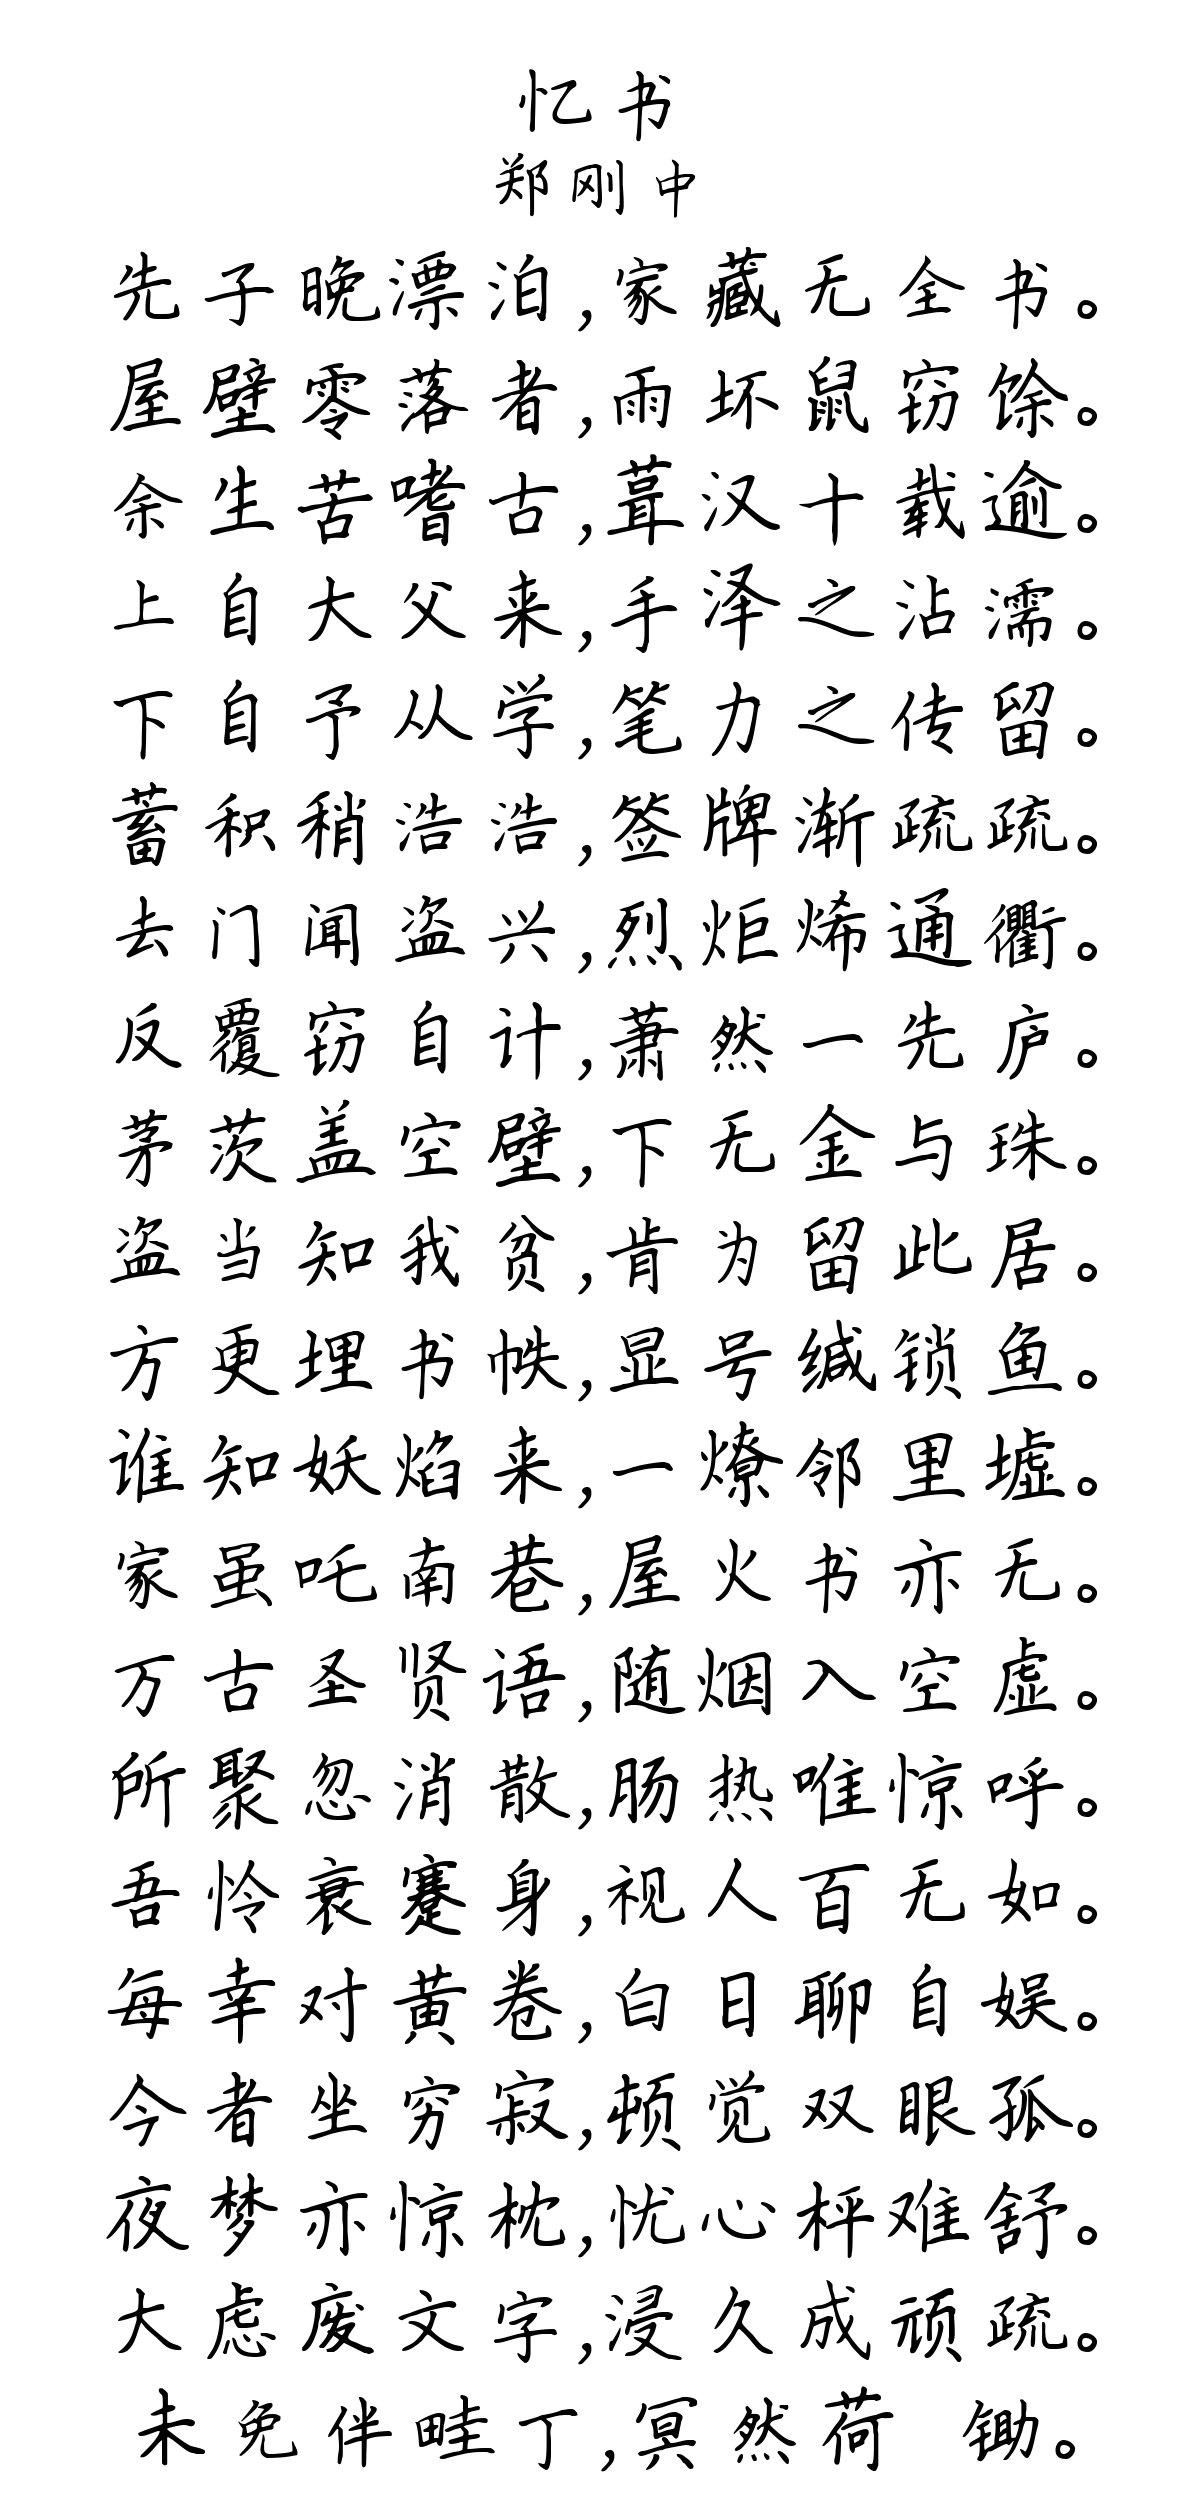 忆书
郑刚中
先子晚漂泊,家藏无全书。
屋壁零落者,雨坏鼠窃馀。
余生苦嗜古,葺治十载逾。
上自大父来,手泽之沾濡。
下自予从学,笔力之传留。
蓄积稍浩浩,签牌渐疏疏。
去门闻盗兴,烈炬烯通衢。
反覆穷自计,萧然一先庐。
茅茨盖空壁,下无金与珠。
盗当知我贫,肯为留此居。
亦连埋书帙,显号缄锁鱼。
谁知妖焰来,一 燎邻里墟。
家虽吃南巷,屋火书亦无。
万古圣贤语,随烟入空虚。
所聚忽消散,肠热唯惊呼。
吾怜衰蹇身,视人百无如。
每幸对黄卷,白日聊自娱。
今者坐穷寂,顿觉双眼孤。
夜梦亦惊枕,忧心枰难舒。
大虑废文字,浸久成顽疏。
未免伴畦丁,冥然荷 锄。